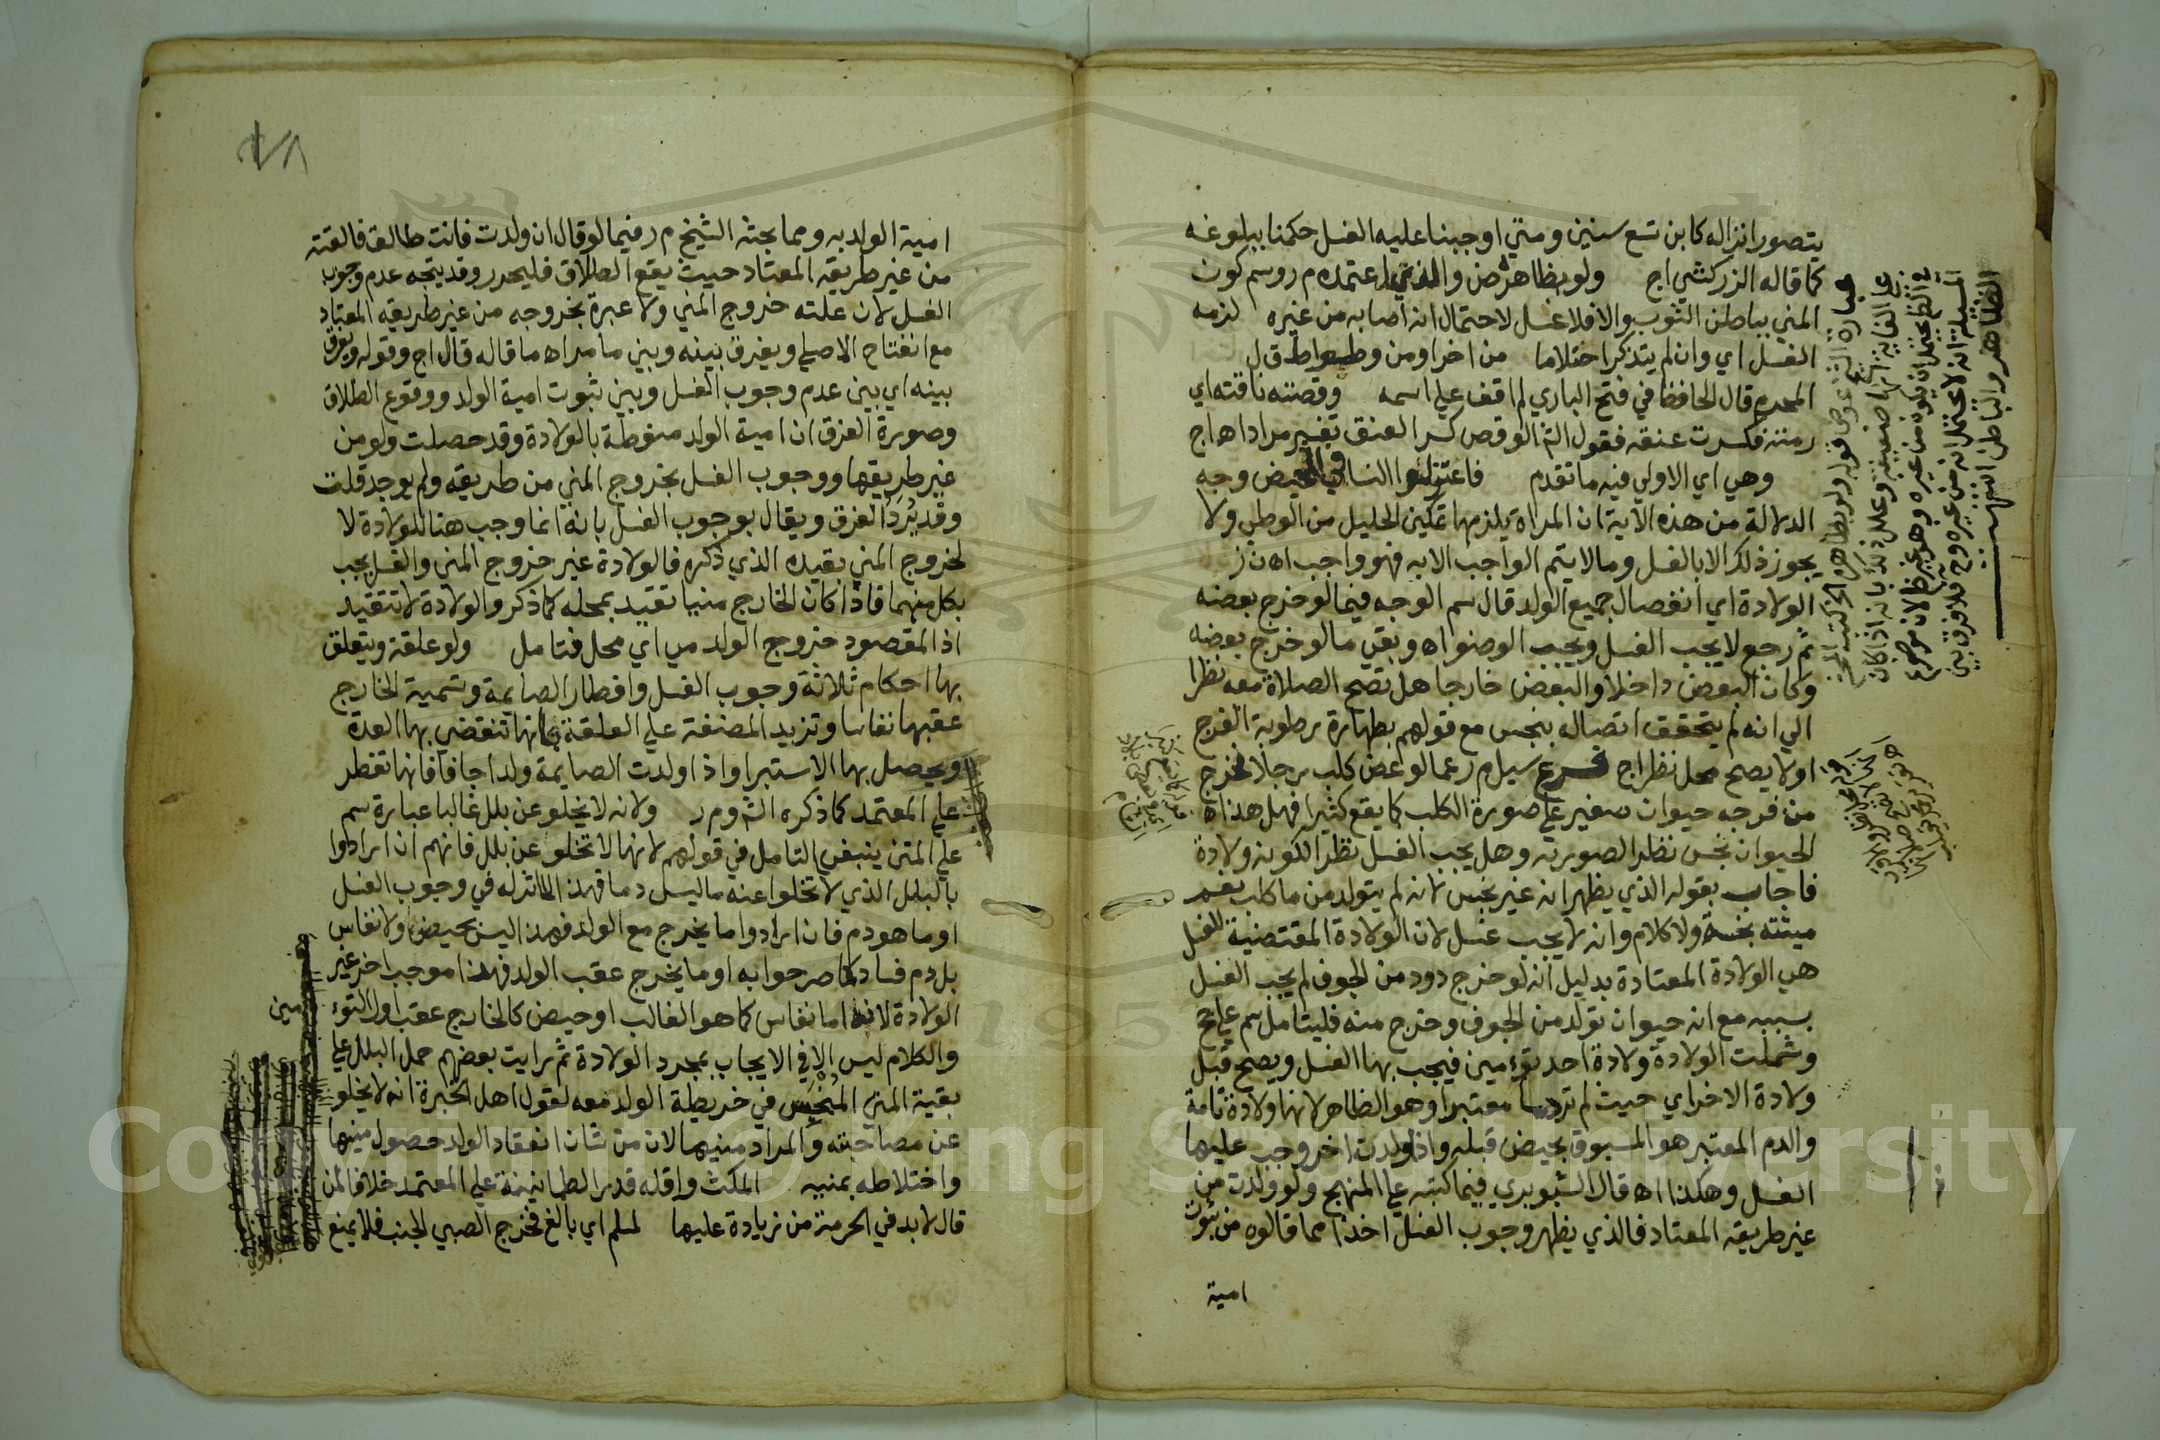 يتصور انزاله كابن تسع سنين ومتي اوجبنا عليه الغسل حكمنا ببلوغه
كما قاله الزركشي اج ولو بظاهر ض والذي اعتمده م ر وسم كون
المني بباطن الثوب والا فلا غسل لاحتمال انه اصابه من غيره لزمه
الغسل اي وان لم يتذكر احتلاما من اخر او من وطي
المحرم قال الحافظ في فتح الباري لم اقف علي اسمه وقصته ناقته اي
رمته فكسرت عنقه فقول الش الوقص كسر العنق تفسير مراد اه اج
وهي اي الاولي فيه ما تقدم فاعتزلوا النسا في المحيض وجه
الدلالة من هذه الاية ان المراة يلزمها تمكين الحليل من الوطي ولا
يجوز ذلك الا بالغسل وما لا يتم الواجب الا به فهو واجب اه
الولادة اي انفصال جميع الولد قال سم الوجه فيما لو خرج بعضه
ثم رجع لا يجب الغسل ويجب الوضو اه وبقي ما لو خرج بعضه
وكان البعض داخلا والبعض خارجا هل تصح الصلاة معه نظرا
الي انه لم يتحقق اتصاله بنجس مع قولهم بطهارة رطوبة الفرج
او لا يصح محل نظر اج فرع سيل م ر عما لو عض كلب رجلا فخرج
من فرجه حيوان صغير علي صورة الكلب كما يقع كثيرا فهل هذا
الحيوان نجس نظرا لصورته وهل يجب الغسل نظرا لكونه ولادة
فاجاب بقوله الذي يظهر انه غير نجس لانه لم يتولد من ما كلب نعم
ميتته نجسة ولا كلام وانه لا يجب غسل لان الولادة المقتضية للغسل
هي الولادة المعتادة بدليل انه لو خرج دود من الجوف لم يجب الغسل
بسببه مع انه حيوان تولد من الجوف وخرج منه فليتامل سم علي حج
وشملت الولادة ولادة احد توءمين فيجب بها الغسل ويصح قبل
ولادة الاخر اي حيث لم تر دما معتبرا وهو الظاهر لانها ولادة تامة
والدم المعتبر هو المسبوق بحيض قبله واذا ولدت اخر وجب عليها
الغسل وهكذا اه قال الشوبري فيما كتبه علي المنهج ولو ولدت من
غير طريقه المعتاد فالذي يظهر وجوب الغسل اخذا مما قالوه من ثبوت
امية
امية الولد به ومما بحثه الشيخ م ر فيما لو قال ان ولدت فانت طالق فالقته
من غير طريقه المعتاد حيث يقع الطلاق فليحرر وقد يتجه عدم وجوب
الغسل لان علته خروج المني ولا عبرة بخروجه من غير طريقه المعتاد
مع انفتاح الاصلي ويفرق بينه وبين ما مر اه ما قاله قال اج وقوله ويفرق
بينه اي بين عدم وجوب الغسل وبين ثبوت امية الولد ووقوع الطلاق
وصورة الفرق ان امية الولد منوطة بالولادة وقد حصلت ولو من
غير طريقها ووجوب الغسل بخروج المني من طريقه ولم يوجد قلت
وقد يُرَدّ الفرق ويقال بوجوب الغسل بانه انما وجب هنا للولادة لا
لخروج المني بقيده الذي ذكره فالولادة غير خروج المني والغسل يجب
بكل منهما فاذا كان الخارج منيا تقيد بمحله كما ذكر والولادة لا تتقيد
اذ المقصود خروج الولد من اي محل فتامل ولو علقة ويتعلق
بها احكام ثلاثة وجوب الغسل وافطار الصايمة وتسمية الخارج
عقبها نفاسا وتزيد المضغة علي العلقة بانها تنقضي بها العدة
ويحصل بها الاستبرا واذا ولدت الصايمة ولدا جافا فانها تفطر
علي المعتمد كما ذكره الش و م ر ولانه لا يخلو عن بلل غالبا عبارة سم
علي المتن ينبغي التامل في قولهم لانها لا تخلو عن بلل فانهم ان ارادوا
بالبلل الذي لا تخلوا عنه ما ليس دما فهذا لا اثر له في وجوب الغسل
او ما هو دم فان ارادوا ما يخرج مع الولد فهذا ليس بحيض ولا نفاس
بل دم فساد كما صرحوا به او ما يخرج عقب الولد فهذا موجب اخر غير
الولادة لانه اما نفاس كما هو الغالب او حيض كالخارج عقب اول التوء
مين
والكلام ليس الا في الايجاب بمجرد الولادة ثم رايت بعضهم حمل البلل علي
بقية المني المنحبس في خريطة الولد معه لقول اهل الخبرة انه لا يخلو
عن مصاحبته والمراد منيهما لان من شان انعقاد الولد حصول منيها
واختلاطه بمنيه المكث واقله قدر الطمانينة علي المعتمد خلافا لمن
قال لا بد في الحرمة من زيادة عليها لمسلم اي بالغ فخرج الصبي الجنب فلا يمنع
Copyright © King Saud University
1957